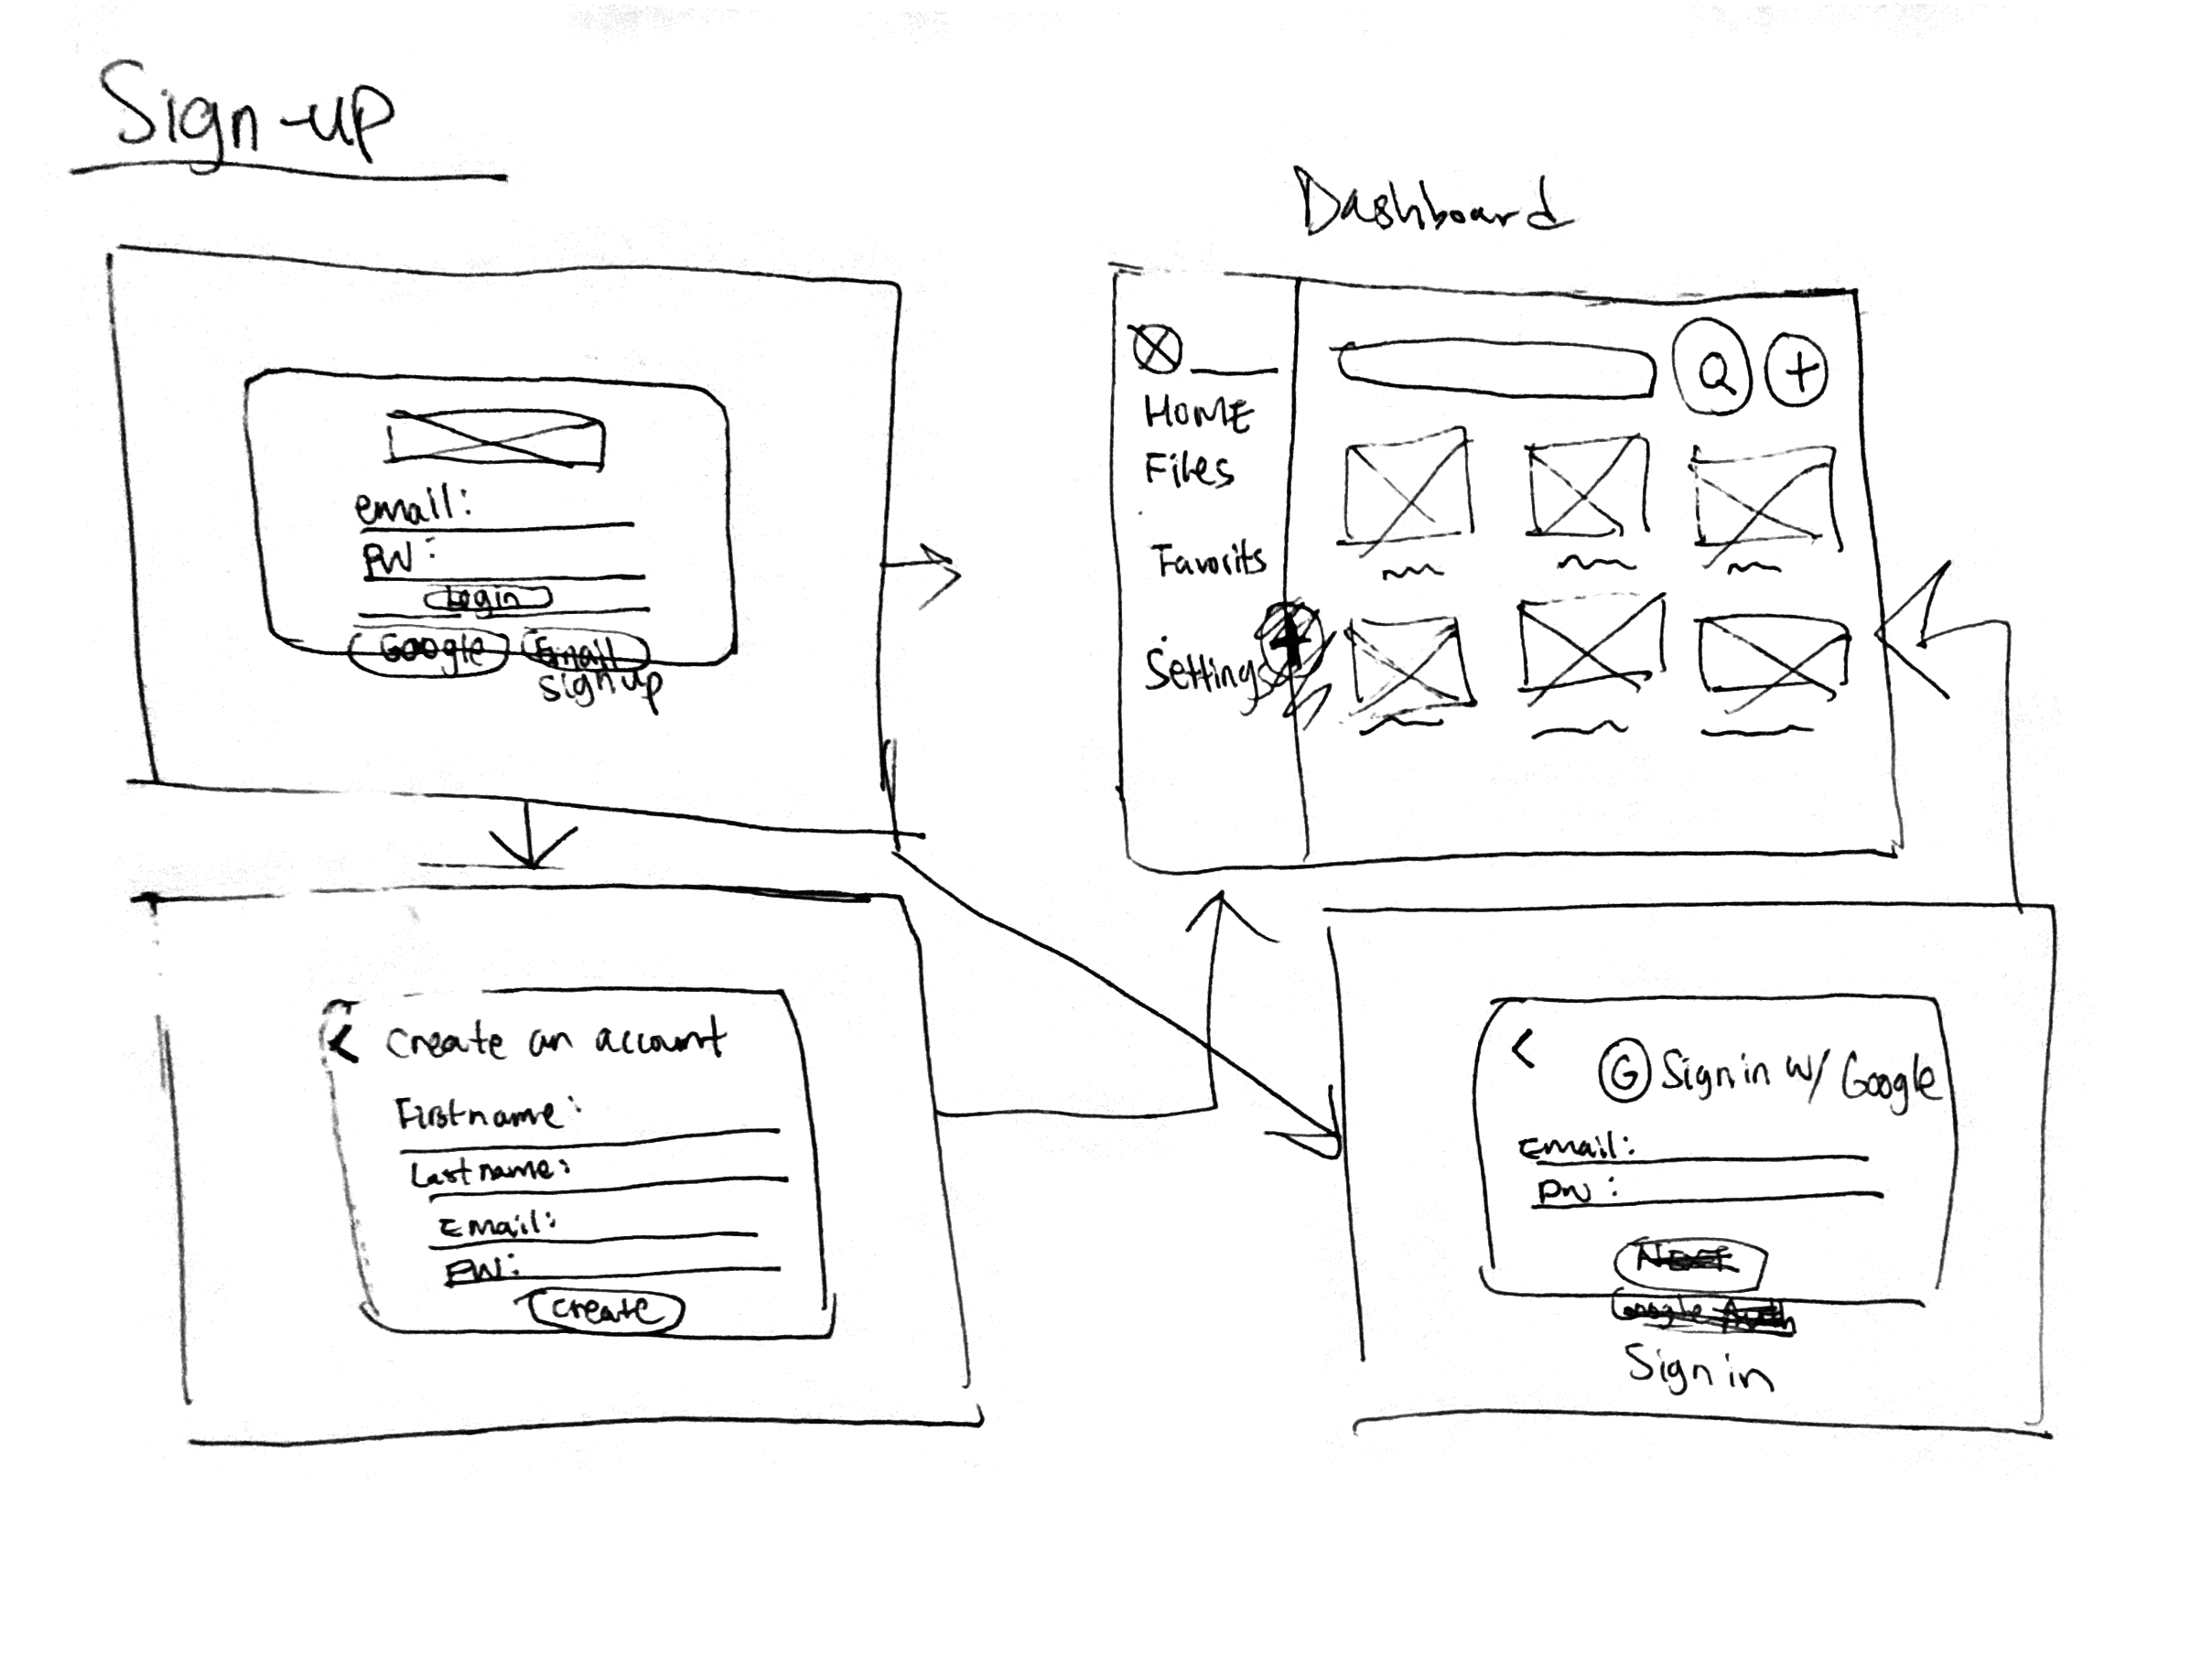 Sign-up
email:
PW:
Login
Google
Email
signup
Dashboard
HOME
Files
Favorits
Settings
Q
+
< create an account
Firstname:
Lastname:
Email:
PW:
create
<
G Sign in w/ Google
Email:
PW:
Google
Sign in